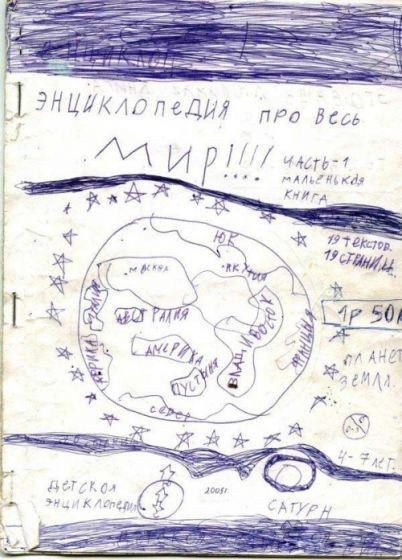 ЭНЦИКЛОПЕДИЯ ПРО ВЕСЬ
МИР!!!!
ЧАСТЬ-1
МАЛЕНЬКАЯ
КНИГА
19 ТЕКСТОВ.
19 СТРАНИЦ.
ЮК
МОСКВА
АВСТРАЛИЯ
АМЕРИКА
ПУСТЫНЯ
ВЛАДИВОСТОК
СЕВЕР
1р 50
ПЛАНЕТ
ЗЕМЛЛ.
4-7 ЛЕТ.
ДЕТСКАЯ
ЭНЦИКЛОПЕДИЯ
2005г.
САТУРН